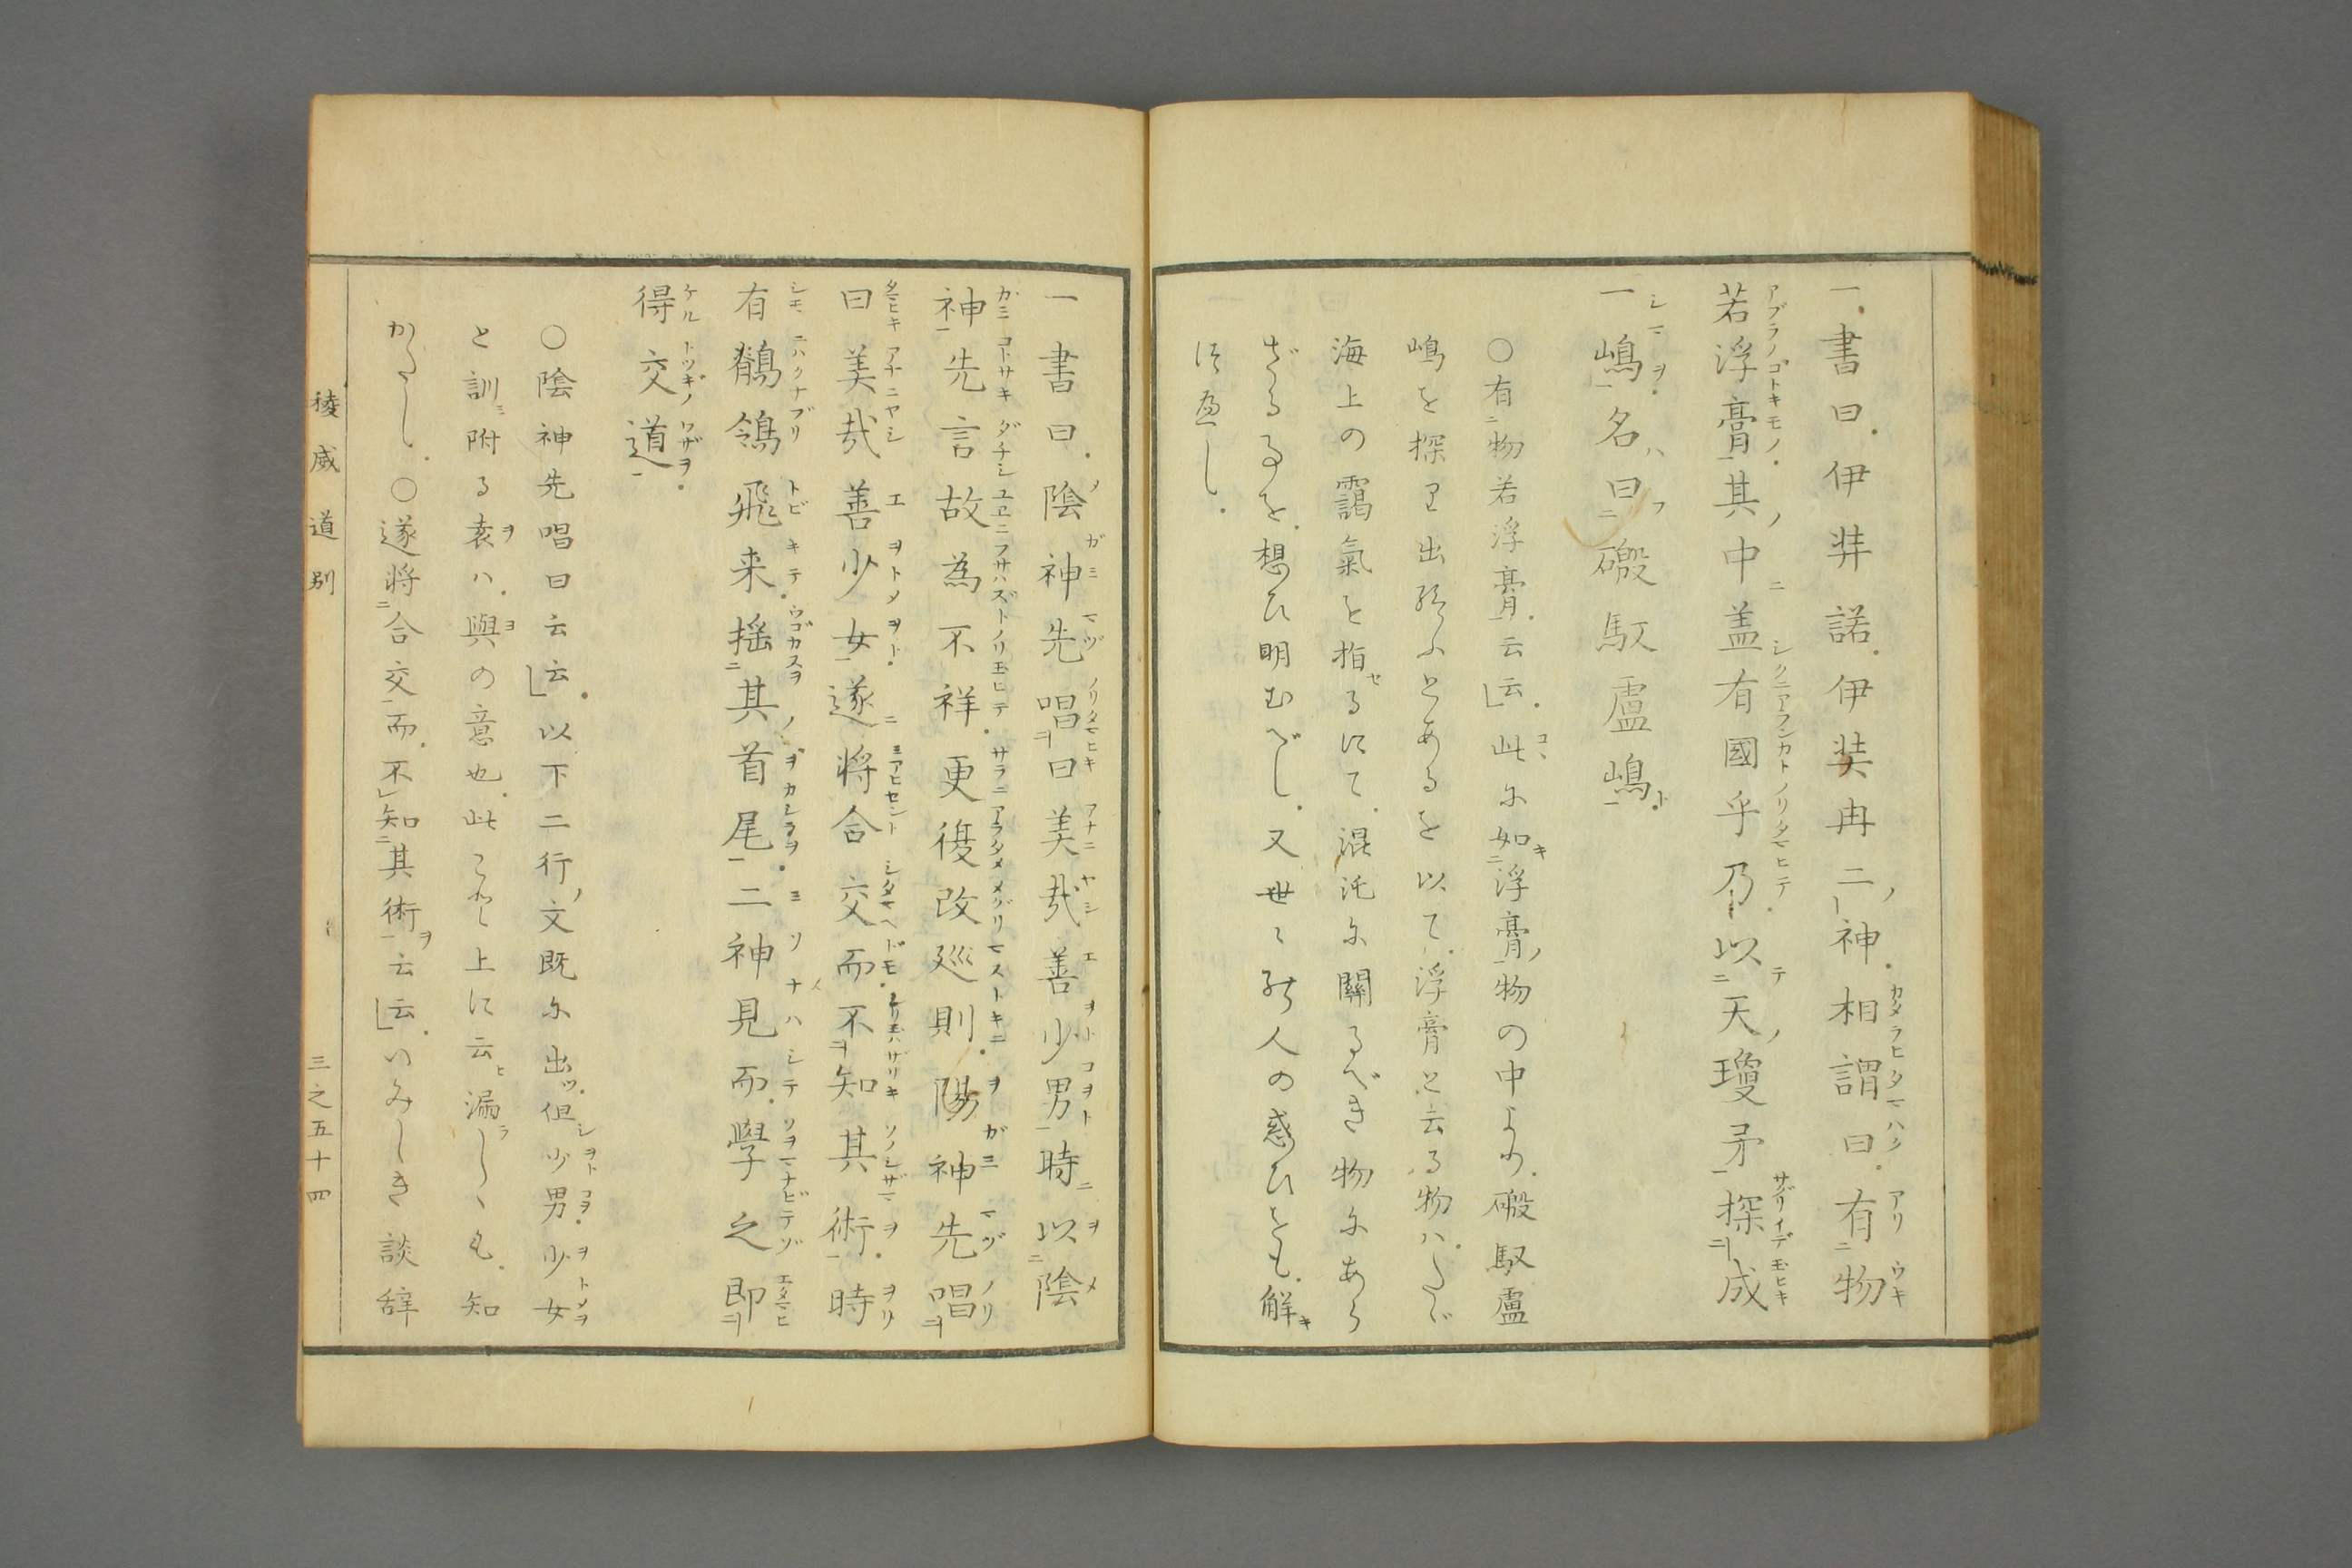 一書曰伊弉諾伊弉冉二神相謂曰有物
若浮膏其中盖有國乎乃以天瓊矛探成
一嶋名曰磤馭盧嶋
○有物若浮膏云云此に如浮膏物の中より磤馭盧
嶋を探り出給ふとあるを以て浮膏と云る物ハたゞ
海上の靄氣を指るにて混沌に關るべき物にあら
ざる事を想ひ明むべし又世々
人の惑ひをも解
一書曰陰神先唱曰美哉善少男時以陰
神先言故為不祥更復改巡則陽神先唱
曰美哉善少女遂將合交而不知其術時
有鶺鴒飛来揺其首尾二神見而學之即
得交道
○陰神先唱曰云云以下二行文既に出但少男少女
と訓附る袁ハ與の意也此これも上に云漏しゝも知
かたし○遂將合交而不知其術云云いみしき談辞
稜威道別
三之五十四